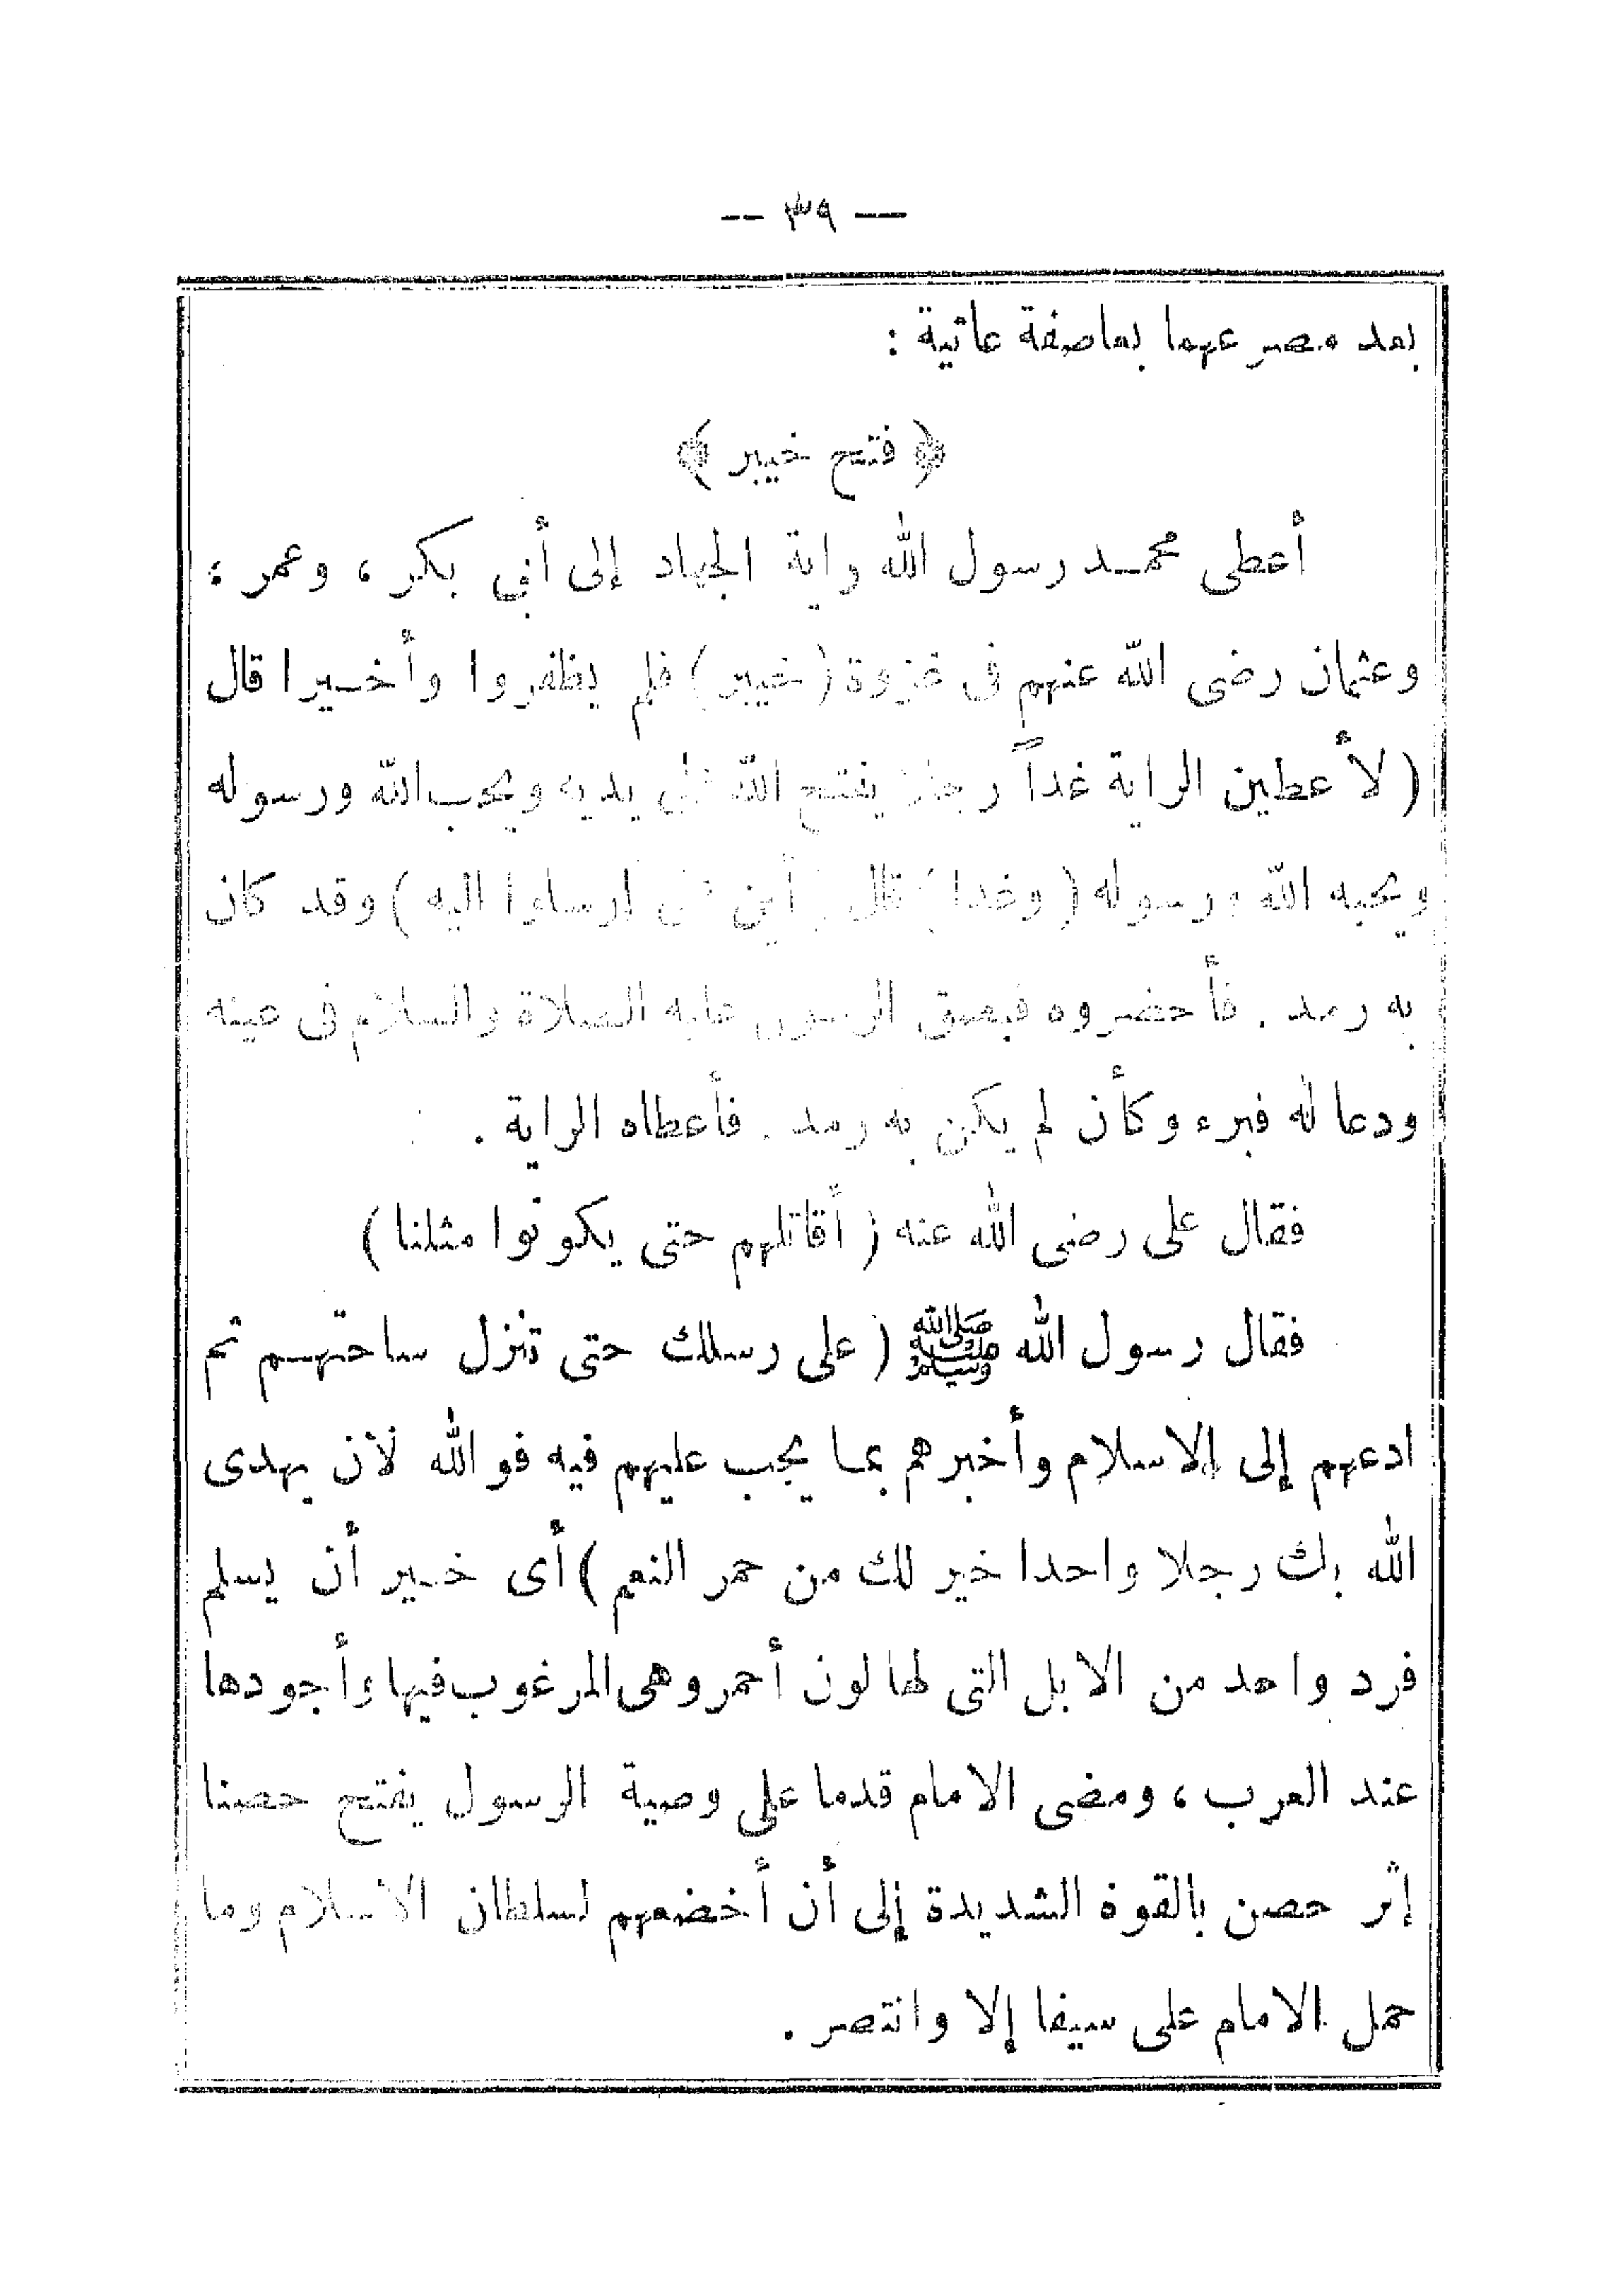 — ٣٩ —
بعد مصرعهما بعاصفة عاتية :
﴿ فتح خيبر ﴾
أعطى محمد رسول الله راية الجهاد إلى أبى بكر ، وعمر ،
وعثمان رضى الله عنهم فى غزوة (خيبر) فلم يظفروا وأخيرا قال
(لأعطين الراية غداً رجلا يفتح الله على يديه ويحب الله ورسوله
ويحبه الله ورسوله ( وغدا ) قال ( أين على ارسلوا اليه ) وقد كان
به رمد . فأحضروه فبصق الرسول عليه الصلاة والسلام فى عينه
ودعا له فبرء وكأن لم يكن به رمد . فأعطاه الراية .
فقال على رضى الله عنه ( أقاتلهم حتى يكونوا مثلنا )
فقال رسول الله ﷺ ( على رسلك حتى تنزل ساحتهم ثم
ادعهم إلى الاسلام وأخبرهم بما يجب عليهم فيه فو الله لأن يهدى
الله بك رجلا واحدا خير لك من حمر النعم ) أى خير أن يسلم
فرد واحد من الابل التى لها لون أحمر وهى المرغوب فيها وأجودها
عند العرب ، ومضى الامام قدما على وصية الرسول يفتح حصنا
إثر حصن بالقوة الشديدة إلى أن أخضعهم لسلطان الاسلام وما
حمل الامام على سيفا إلا وانتصر .